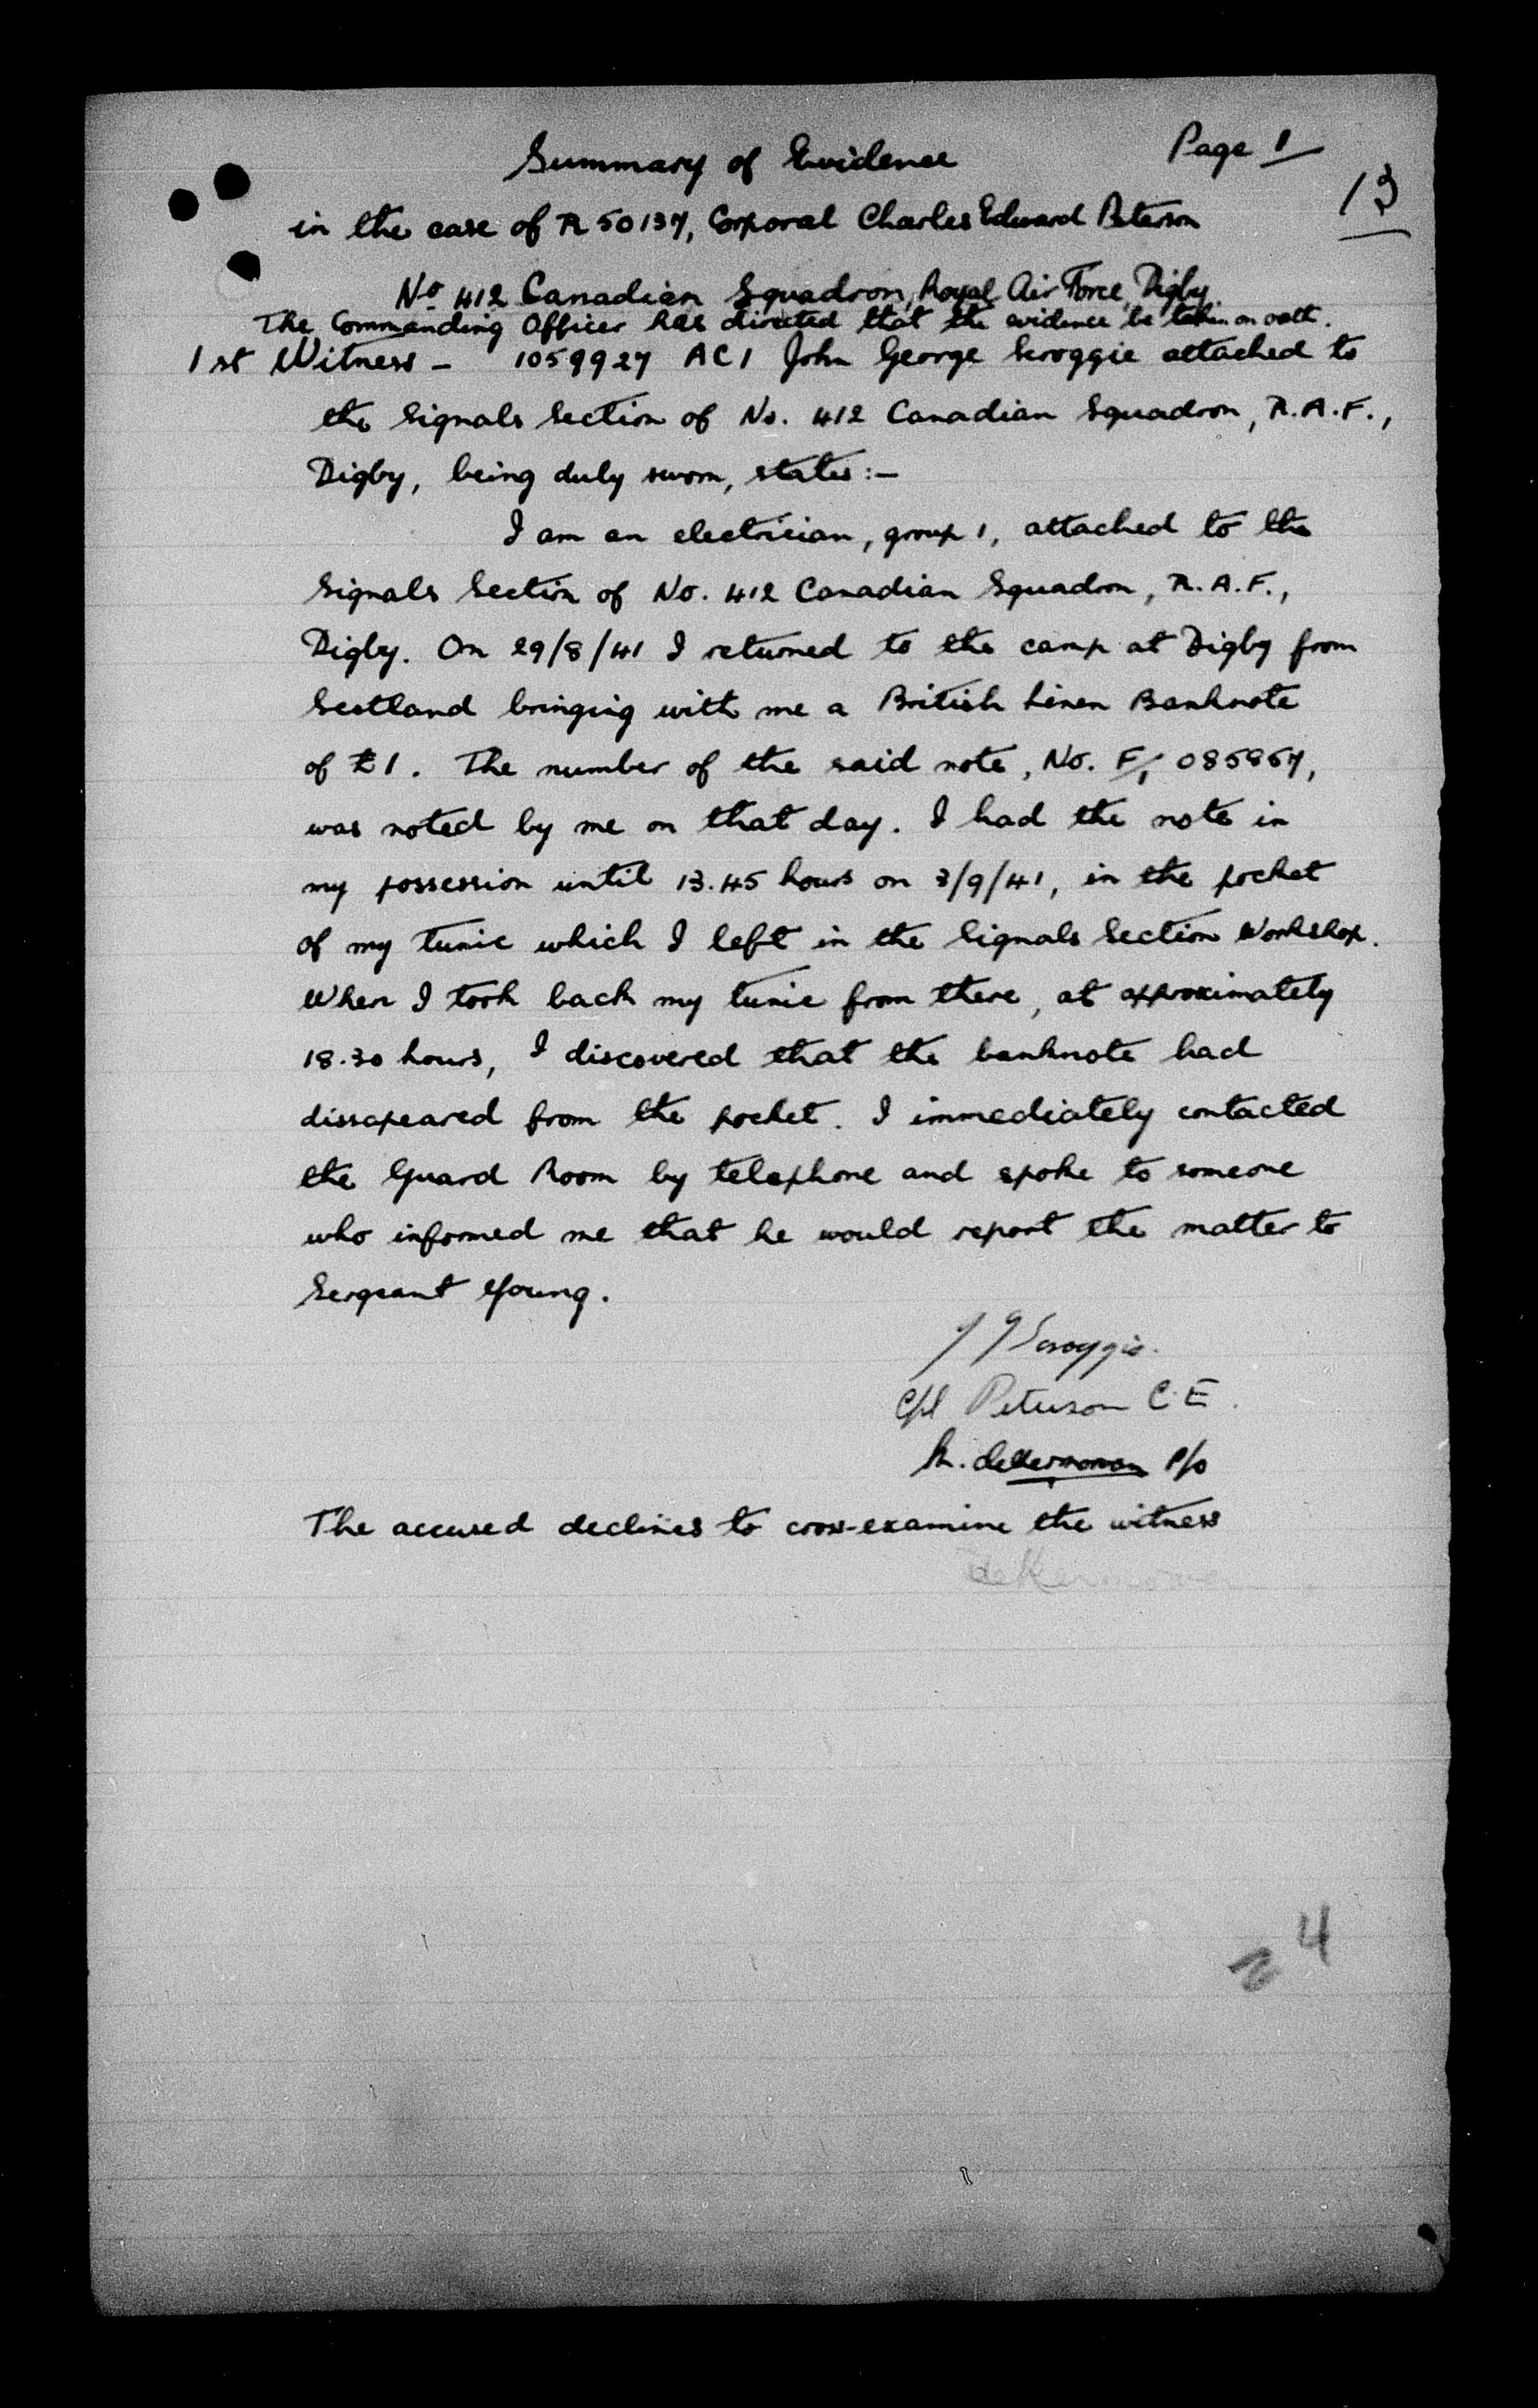 Page 1
13
Summary of Evidence
in the case of R 50137, Corporal Charles Edward Peterson
No 412 Canadian Squadron, Royal Air Force, Digby.
The Commanding Officer has directed that the evidence be taken on oath.
1st Witness - 1059927 AC1 John George Scroggie attached to
the Signals Section of No. 412 Canadian Squadron, R.A.F.,
Digby, being duly sworn, states:-
I am an electrician, group 1, attached to the
Signals Section of No. 412 Canadian Squadron, R.A.F.,
Digby. On 29/8/41 I returned to the camp at Digby from
Scotland bringing with me a British Linen Banknote
of £1. The number of the said note, No. F/1
was noted by me on that day. I had the note in
my possession until 13.45 hours on 3/9/41, in the pocket
of my tunic which I left in the Signals Section Workshop.
When I took back my tunic from there, at approximately
18.30 hours, I discovered that the banknote had
dissapeared from the pocket. I immediately contacted
the Guard Room by telephone and spoke to someone
who informed me that he would report the matter to
Sergeant Young.
J G Scroggie.
Cpl Peterson C.E.
P/O
The accused declines to cross-examine the witness
4